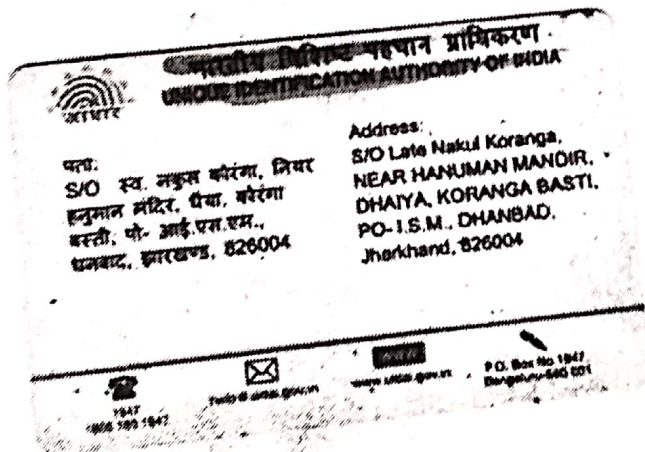 भारतीय विशिष्ट पहचान प्राधिकरण
UNIQUE IDENTIFICATION AUTHORITY OF INDIA
आधार
पता:
S/O स्व. नकुल कोरंगा, नियर
हनुमान मंदिर, धैया, कोरंगा
बस्ती, पो- आई.एस.एम.,
धनबाद, झारखण्ड, 826004
Address:
S/O Late Nakul Koranga,
NEAR HANUMAN MANDIR,
DHAIYA, KORANGA BASTI,
PO- I.S.M., DHANBAD,
Jharkhand, 826004
1947
1800 180 1947
www.uidai.gov.in
P.O. Box No.1947,
Bengaluru-560 001